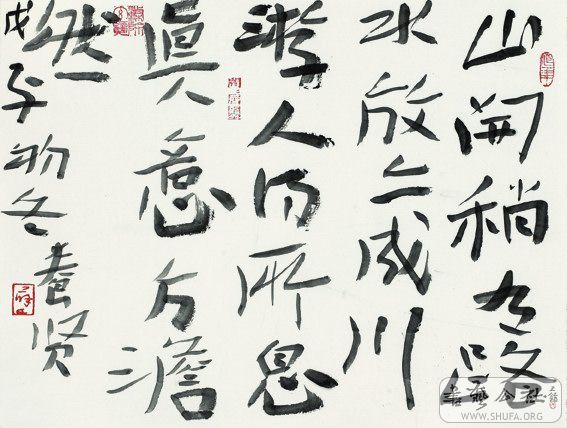 山開稍有路
水放亦成川
游人得所息
真意方澹
然
戊子初冬 贤
書藝公社
WWW.SHUFA.ORG